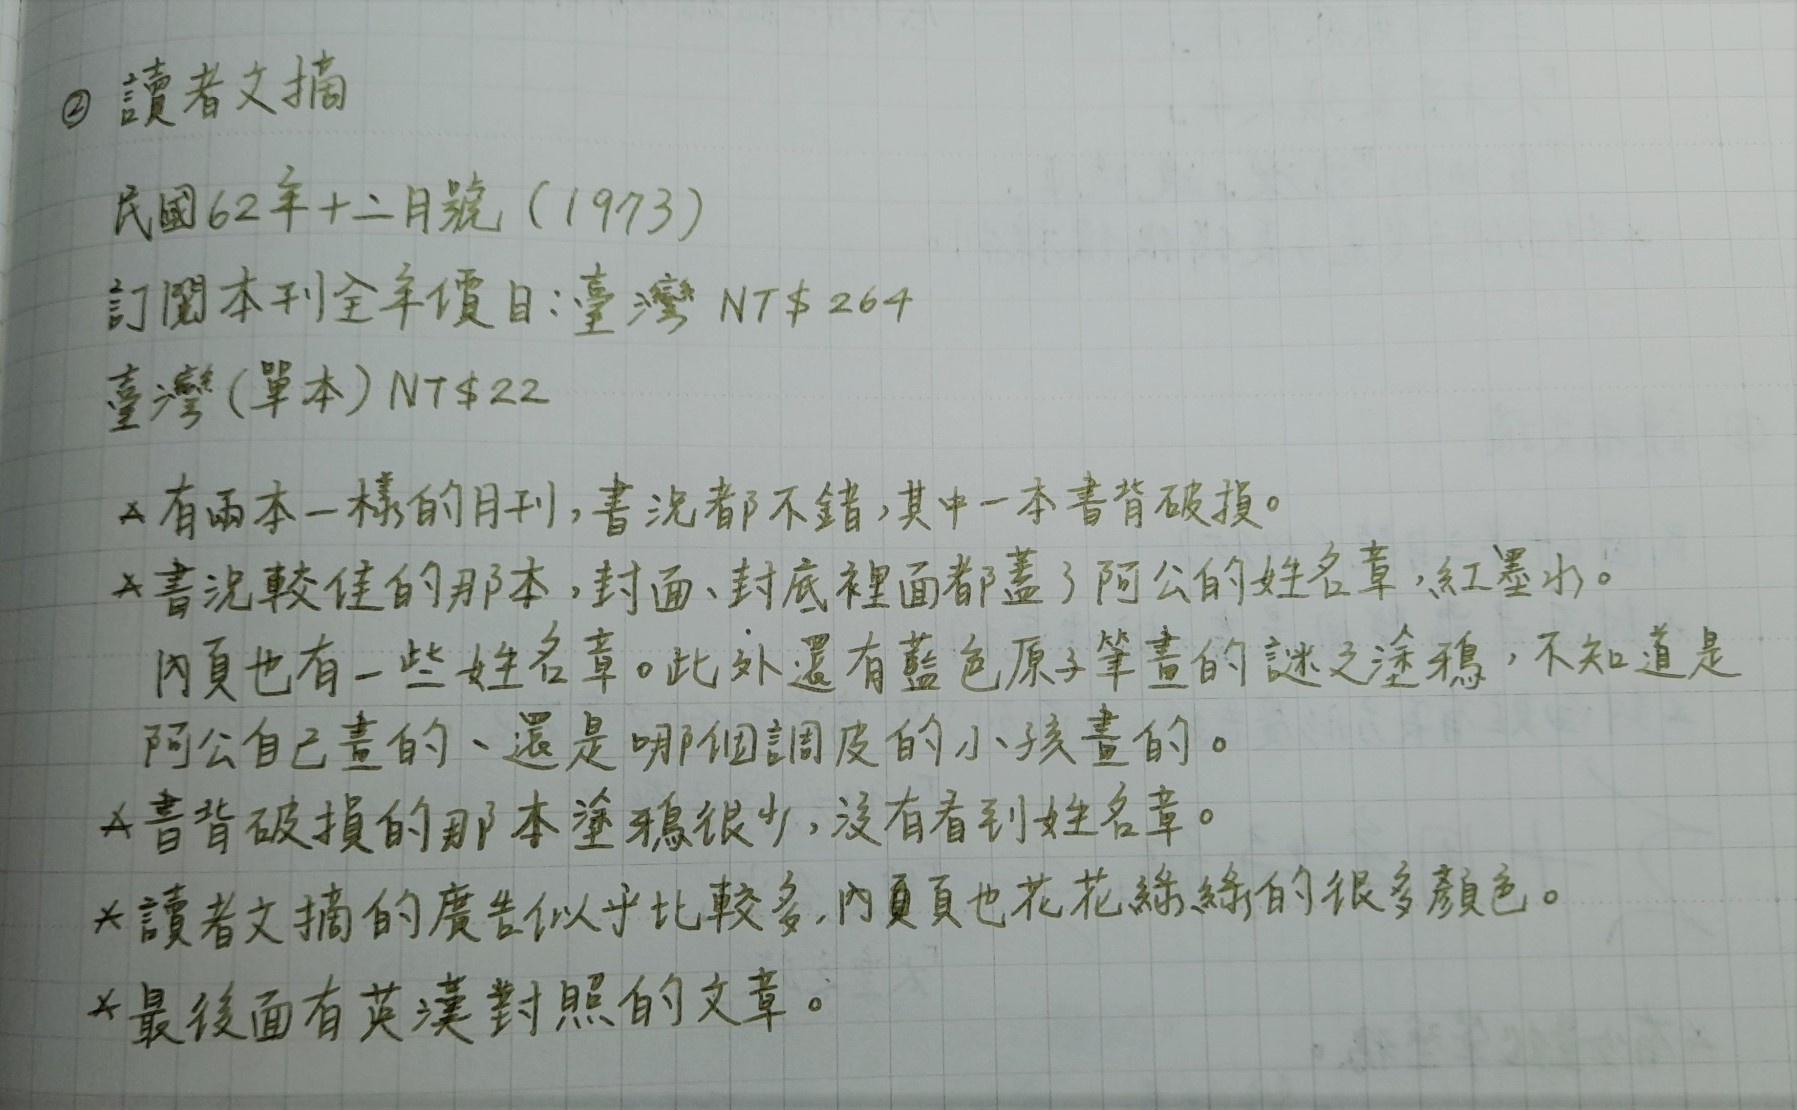 ② 讀者文摘
民國62年十二月號（1973）
訂閱本刊全年價目：臺灣 NT$264
臺灣（單本）NT$22
☆有兩本一樣的月刊，書況都不錯，其中一本書背破損。
☆書況較佳的那本，封面、封底裡面都蓋了阿公的姓名章，紅墨水。
內頁也有一些姓名章。此外還有藍色原子筆畫的謎之塗鴉，不知道是
阿公自己畫的、還是哪個調皮的小孩畫的。
☆書背破損的那本塗鴉很少，沒有看到姓名章。
☆讀者文摘的廣告似乎比較多，內頁頁也花花綠綠的很多顏色。
☆最後面有英漢對照的文章。